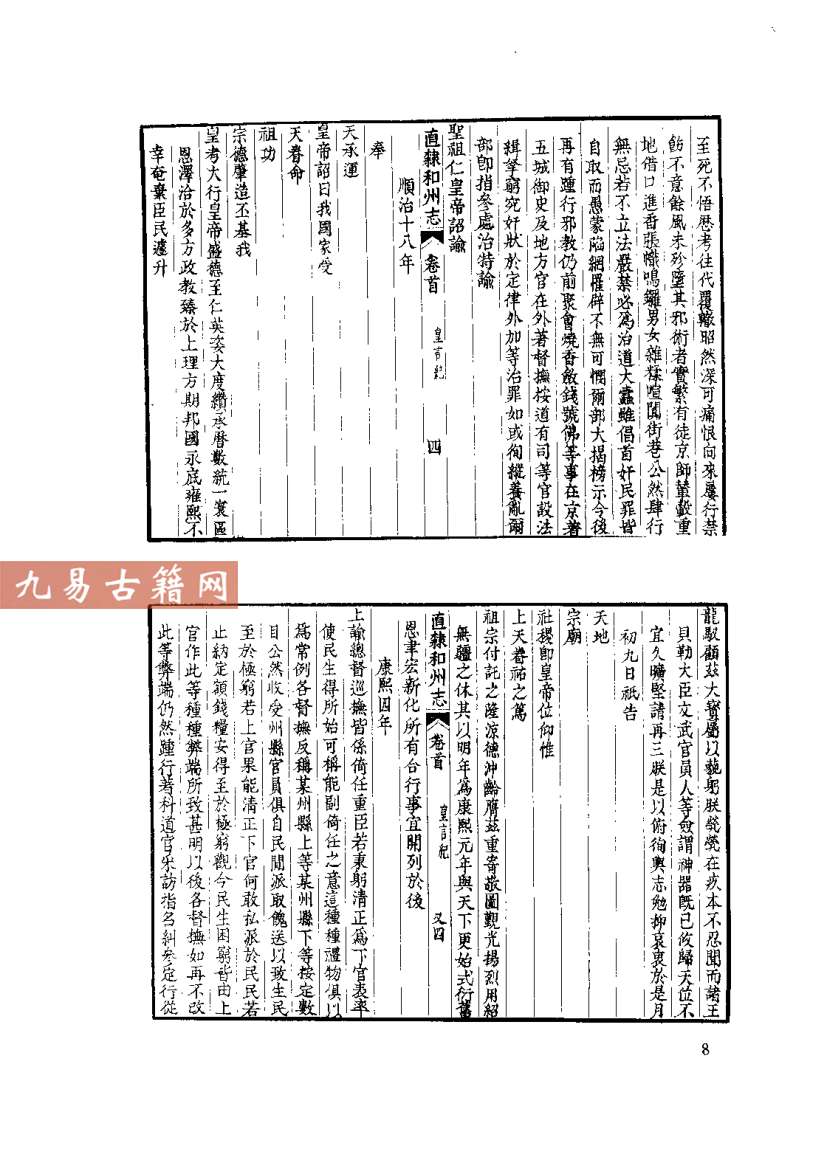 至死不悟歷考往代覆轍昭然深可痛恨向來屢行禁
飭不意餘風未殄墮其邪術者實繁有徒京師輦轂重
地借口進香張幟鳴鑼男女雜糅喧闐街巷公然肆行
無忌若不立法嚴禁必爲治道大蠹雖倡首奸民罪皆
自取而愚蒙陷網罹辟不無可憫爾部大揭榜示今後
再有踵行邪教仍前聚會燒香斂錢號佛等事在京著
五城御史及地方官在外著督撫按道有司等官設法
緝拏窮究奸狀於定律外加等治罪如或徇縱養亂爾
部卽指參處治特諭
聖祖仁皇帝詔諭
直隸和州志 卷首 皇言紀 四
順治十八年
奉
天承運
皇帝詔曰我國家受
天眷命
祖功
宗德肇造丕基我
皇考大行皇帝盛德至仁英姿大度纘承曆數統一寰區
恩澤洽於多方政教臻於上理方期邦國永底雍熙不
幸奄棄臣民遽升
龍馭顧茲大寶屬以藐躬朕煢煢在疚本不忍聞而諸王
貝勒大臣文武官員人等僉謂神器旣已攸歸天位不
宜久曠堅請再三朕是以俯徇輿志勉抑哀衷於是月
初九日祇告
天地
宗廟
社稷卽皇帝位仰惟
上天眷祐之篤
祖宗付託之隆涼德沖齡膺茲重寄敬圖觀光揚烈用紹
無疆之休其以明年爲康熙元年與天下更始式衍舊
直隸和州志 卷首 皇言紀 又四
恩聿宏新化所有合行事宜開列於後
康熙四年
上諭總督巡撫皆係倚任重臣若秉躬清正爲下官表率
使民生得所始可稱能副倚任之意這種種禮物俱以
爲常例各督撫反稱某州縣上等某州縣下等按定數
目公然收受州縣官員俱自民間派取餽送以致生民
至於極窮若上官果能清正下官何敢私派於民民若
止納定額錢糧安得至於極窮觀今民生困窮皆由上
官作此等種種弊端所致甚明以後各督撫如再不改
此等弊端仍然踵行著科道官采訪指名糾參定行從
九易古籍网
8